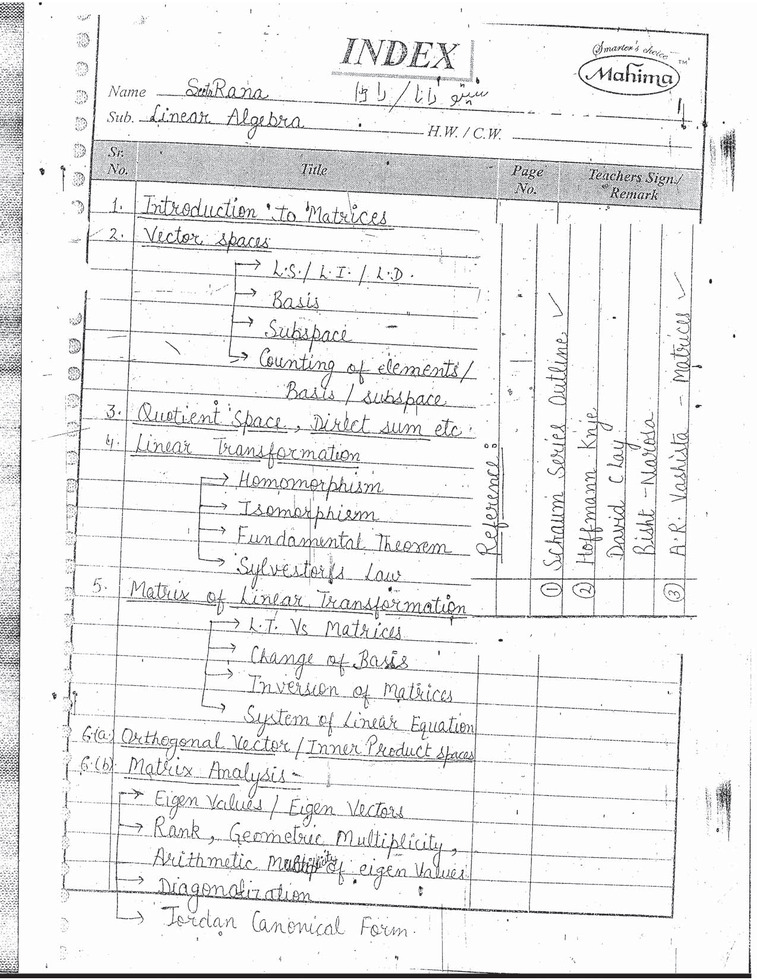 INDEX
Smarter's choice
Mahima™
Name Setu Rana سیتو رانا / رانا
Sub. Linear Algebra H.W. / C.W.
Sr. No. Title Page No. Teachers Sign./ Remark
1. Introduction to Matrices
2. Vector spaces
→ L.S./ L.I. / L.D.
→ Basis
→ Subspace
→ Counting of elements/
Basis / subspace
3. Quotient Space, Direct sum etc.
4. Linear Transformation
→ Homomorphism
→ Isomorphism
→ Fundamental Theorem
→ Sylvestor's Law
5. Matrix of Linear Transformation
→ L.T. Vs Matrices
→ Change of Basis
→ Inversion of Matrices
→ System of Linear Equation
6(a) Orthogonal Vector / Inner Product spaces
6.(b) Matrix Analysis -
→ Eigen Values / Eigen Vectors
→ Rank, Geometric Multiplicity,
Arithmetic Multiplicity of eigen Values
→ Diagonalization
→ Jordan Canonical Form.
Reference:
① Schaum Series Outline ✓
② Hoffmann Knje
David Clay
Bisht - Narosa
③ A.R. Vashista - Matrices ✓